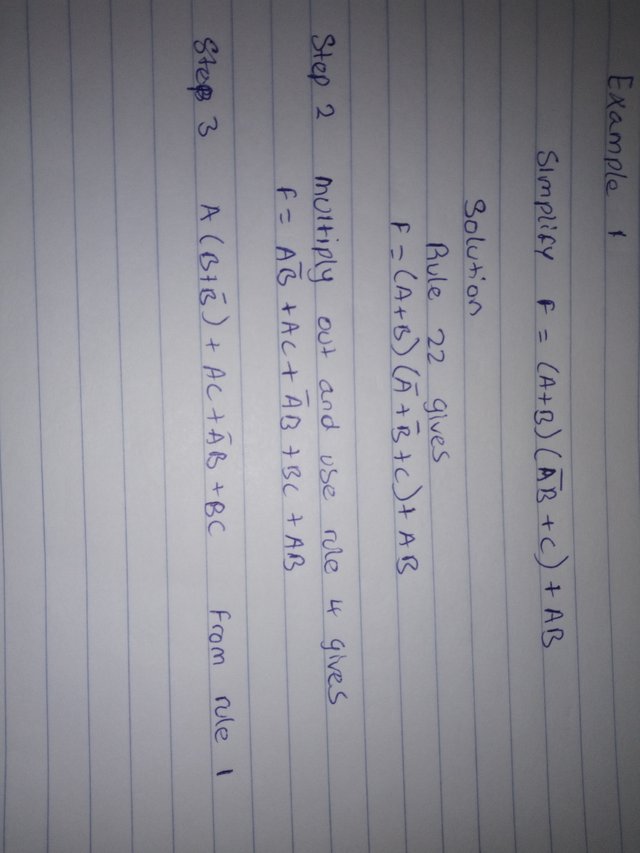 Example 1
Simplify F = (A+B)(A̅B̅ + C) + AB
Solution
Rule 22 gives
F = (A+B)(A̅+B̅+C)+AB
Step 2 multiply out and use rule 4 gives
F = AB̅ + AC + A̅B + BC + AB
Step 3 A(B+B̅) + AC + A̅B + BC from rule 1